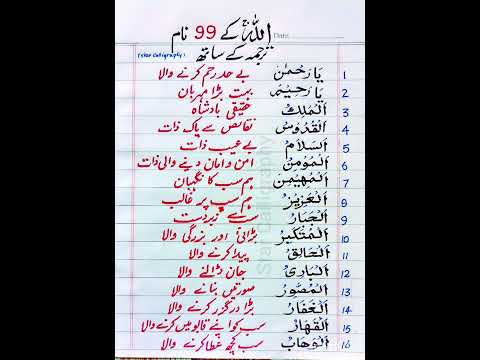 اللہ کے 99 نام
Date:
ترجمہ کے ساتھ
(Star Calligraphy)
1 یَا رَحْمٰنُ بے حد رحم کرنے والا
2 یَا رَحِیْمُ بہت بڑا مہربان
3 اَلْمَلِكُ حقیقی بادشاہ
4 اَلْقُدُّوْسُ نقائص سے پاک ذات
5 اَلسَّلَامُ بے عیب ذات
6 اَلْمُؤْمِنُ امن و امان دینے والی ذات
7 اَلْمُهَیْمِنُ ہم سب کا نگہبان
8 اَلْعَزِیْزُ ہم سب پر غالب
9 اَلْجَبَّارُ سب سے زبردست
10 اَلْمُتَكَبِّرُ بڑائی اور بزرگی والا
11 اَلْخَالِقُ پیدا کرنے والا
12 اَلْبَارِئُ جان ڈالنے والا
13 اَلْمُصَوِّرُ صورتیں بنانے والا
14 اَلْغَفَّارُ بڑا درگزر کرنے والا
15 اَلْقَهَّارُ سب کو اپنے قابو میں کرنے والا
16 اَلْوَهَّابُ سب کچھ عطا کرنے والا
Star Calligraphy